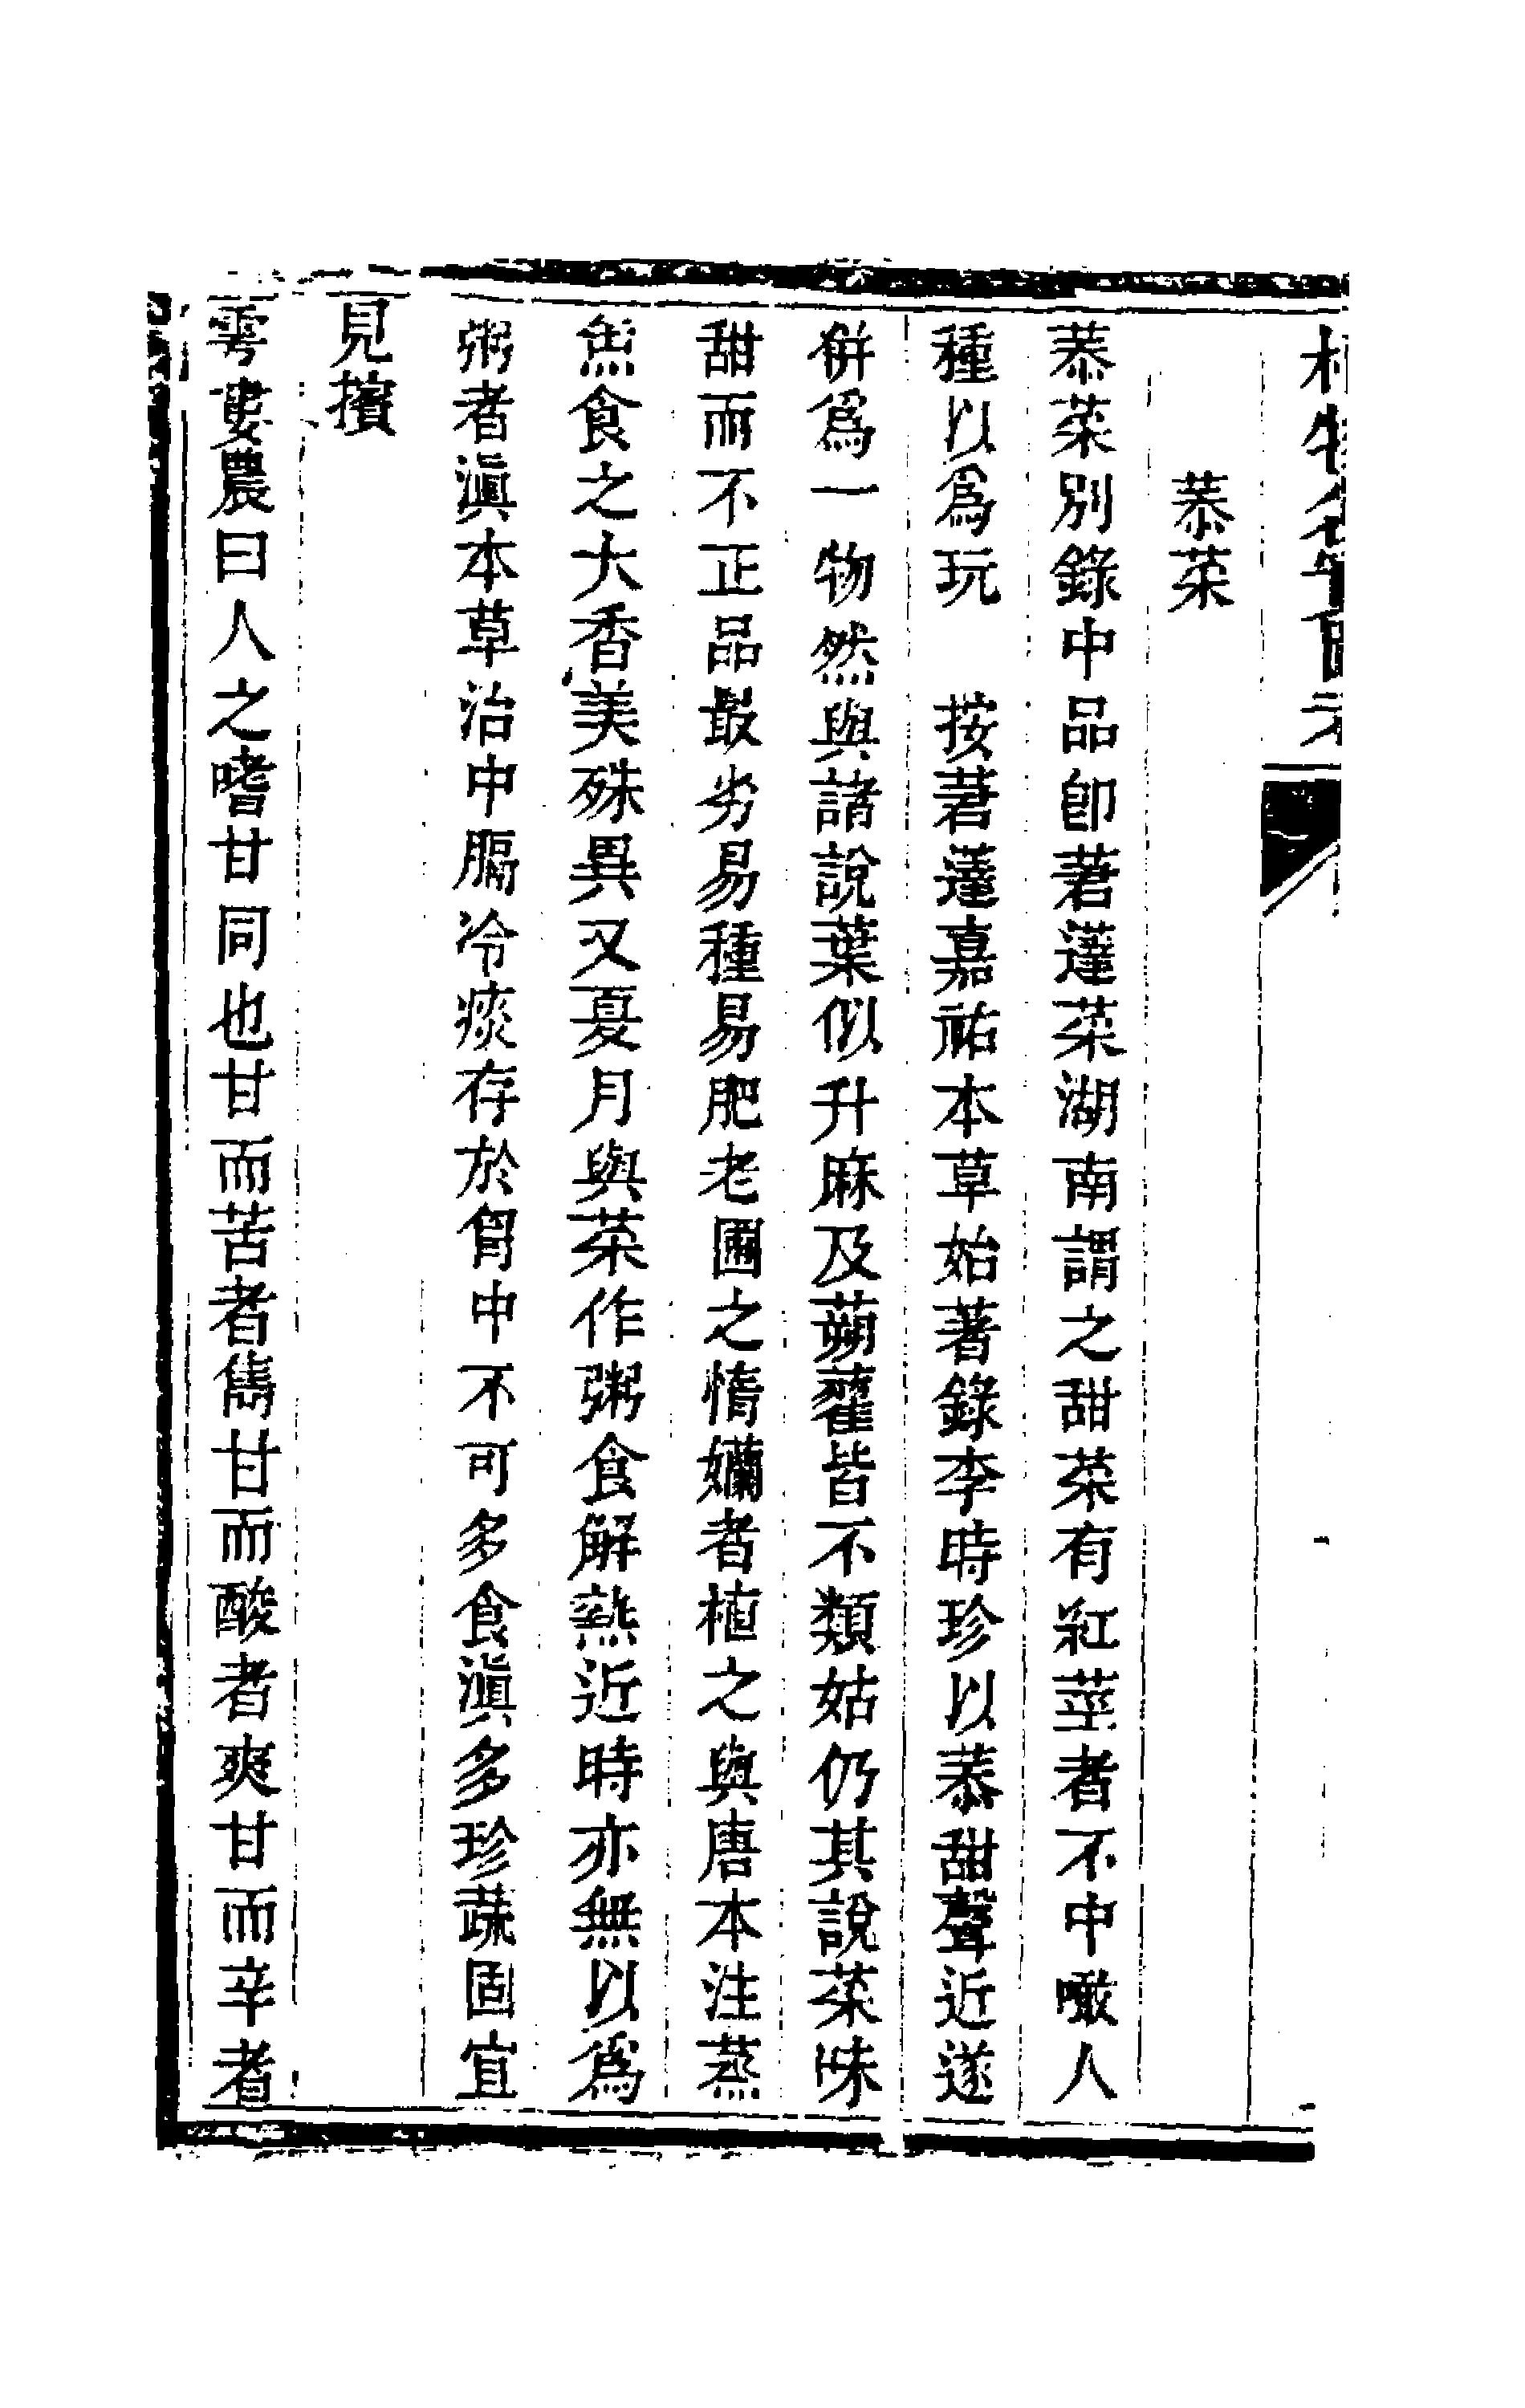 植物名實圖考
菾菜
菾菜別錄中品卽莙薘菜湖南謂之甜菜有紅莖者不中噉人
種以爲玩　按莙薘嘉祐本草始著錄李時珍以菾甜聲近遂
併爲一物然與諸說葉似升麻及蒴藋皆不類姑仍其說菜味
甜而不正品最劣易種易肥老圃之惰嬾者植之與唐本注蒸
缹食之大香美殊異又夏月與菜作粥食解熱近時亦無以爲
粥者滇本草治中膈冷痰存於胷中不可多食滇多珍蔬固宜
見擯
雩婁農曰人之嗜甘同也甘而苦者雋甘而酸者爽甘而辛者